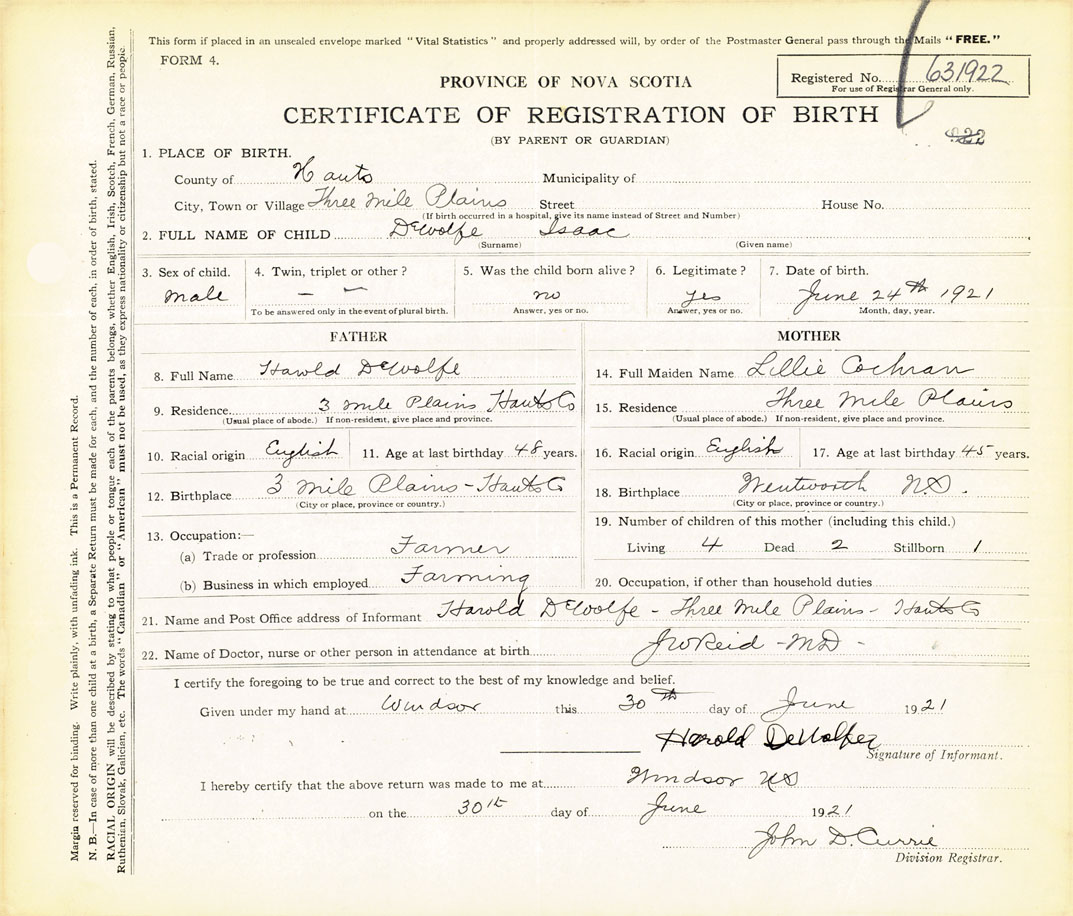 This form if placed in an unsealed envelope marked "Vital Statistics" and properly addressed will, by order of the Postmaster General pass through the Mails "FREE."
FORM 4.
PROVINCE OF NOVA SCOTIA
Registered No. 631922
For use of Registrar General only.
CERTIFICATE OF REGISTRATION OF BIRTH
(BY PARENT OR GUARDIAN)
922
1. PLACE OF BIRTH.
County of Hants Municipality of
City, Town or Village Three Mile Plains Street House No.
(If birth occurred in a hospital, give its name instead of Street and Number)
2. FULL NAME OF CHILD DeWolfe Isaac
(Surname) (Given name)
3. Sex of child. 4. Twin, triplet or other? 5. Was the child born alive? 6. Legitimate? 7. Date of birth.
male — — no yes June 24th 1921
To be answered only in the event of plural birth. Answer, yes or no. Answer, yes or no. Month, day, year.
FATHER
8. Full Name Harold DeWolfe
9. Residence 3 mile Plains Hants Co
(Usual place of abode.) If non-resident, give place and province.
10. Racial origin English 11. Age at last birthday 48 years.
12. Birthplace 3 mile Plains - Hants Co
(City or place, province or country.)
13. Occupation:—
(a) Trade or profession Farmer
(b) Business in which employed Farming
MOTHER
14. Full Maiden Name Lillie Cochran
15. Residence Three Mile Plains
(Usual place of abode.) If non-resident, give place and province.
16. Racial origin English 17. Age at last birthday 45 years.
18. Birthplace Wentworth N.S.
(City or place, province or country.)
19. Number of children of this mother (including this child.)
Living 4 Dead 2 Stillborn 1
20. Occupation, if other than household duties
21. Name and Post Office address of Informant Harold DeWolfe - Three Mile Plains - Hants Co
22. Name of Doctor, nurse or other person in attendance at birth JW Reid - MD -
I certify the foregoing to be true and correct to the best of my knowledge and belief.
Given under my hand at Windsor this 30th day of June 1921
Harold DeWolfe
Signature of Informant.
I hereby certify that the above return was made to me at Windsor NS
on the 30th day of June 1921
John D. Currie
Division Registrar.
Margin reserved for binding. Write plainly, with unfading ink. This is a Permanent Record.
N. B.—In case of more than one child at a birth, a Separate Return must be made for each, and the number of each, in order of birth, stated.
RACIAL ORIGIN will be described by stating to what people or tongue each of the parents belongs, whether English, Irish, Scotch, French, German, Russian,
Ruthenian, Slovak, Galician, etc. The words "Canadian" or "American" must not be used, as they express nationality or citizenship but not a race or people.